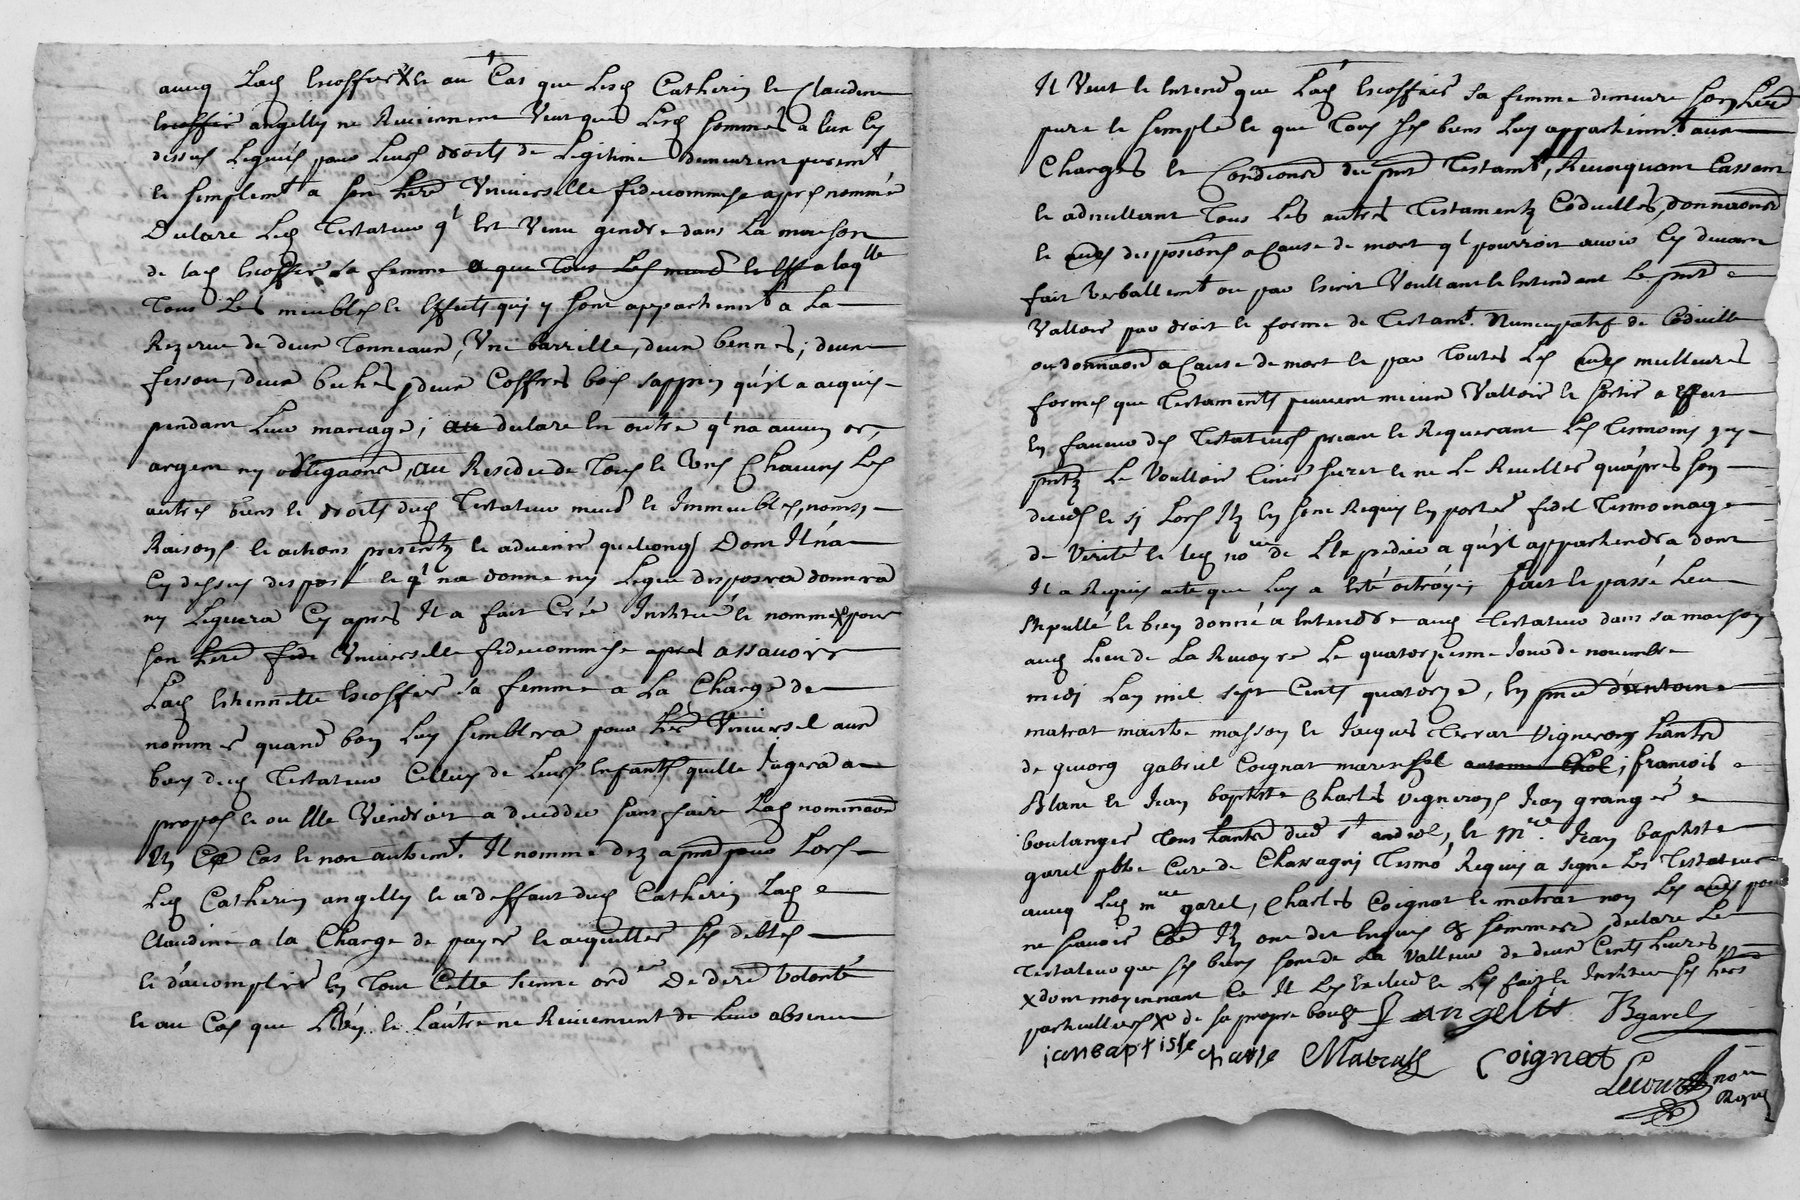 avecq Lad Escoffier X et au Cas que Lesd Catherin et Claudine
Escoffier angelly ne Reviennent Veut que Lesd sommes a eux Cy
dessus Leguées pour Leurs droits de Legitime demeurent puremt
et simplemt a son here Universelle fideicommise apres nommée
Declare Led Testateur qt Est Venu gendre dans La maison
de lad Escoffier sa femme que Tous Les a laqlle
Tous Les meubles et Effects qui y sont appartiennt a La
Rezerve de deux Tonneaux, Une barrille, deux bennes, deux
fessou, deux buches, deux Coffres bois sappin qu'jl a acquis
pendant Leur mariage; au declare En outre qt na aucun or,
argent ny obligaons, au Residu de Tous et Uns Chacuns Les
autres biens et droits dud Testateur meub et Immeubles, noms,
Raisons et actions presents et advenir quelconqs Dont Il n'a
Cy dessus disposé et qt na donné ny Legué disposera donnera
ny Leguera Cy apres Il a fait Créé Institué et nommé X pour
son here Universelle fideicommise apres assavoir
Lad Estiennette Escoffier sa femme a La Charge de
nommer quand bon Luy semblera pour here Universel aux
biens dud Testateur Celluy de Leurs Enfants quelle Jugera a
propos et ou Elle Viendroit a deceder sans faire Lad nominaon
En Ce Cas et non autremt. Il nomme dez a pnt pour Lors
Led Catherin angelly et a deffaut dud Catherin Lad
Claudine a la Charge de payer et acquitter ses debtes
et d'acomplir En Tout Cette sienne ord de dere Volonté
et au Cas que L'Un et L'autre ne Reviennent de Leur absence
Il Veut et Entend que Lad Escoffier sa femme demeure son here
pure et simple et que Tous ses biens Luy appartiennt aux
Charges et Condions du pnt Testamt, Revoquant Cassant
et adnullant Tous Les autres Testaments Codicilles, donnaons
et aues disposions a Cause de mort qt pourroit avoir Cy devant
fait verballemt ou par Escrit Voullant et Entendant Le pnt
Valloir par droit et forme de Testamt. Nuncupatif de Codicille
ou donnaon a Cause de mort et par Toutes Les aues meilleures
formes que Testaments peuvent mieux Valloir et sortir a Effect
En faveur des Testateurs priant et Requerant Les Tesmoins
pnts Le Voulloir Tenir Secret et ne Le Reveller qu'apres son
deceds et sj Lors Ilz En sont Requis En porter fidel Tesmoinage
de Verité et led nore de L'Expedier a qu'jl appartiendra dont
Il a Requis acte que Luy a Esté octroyé; fait et passé Leu
Stipullé et bien donné a Entendre aud Testateur dans sa maison
aud Lieu de La Rivoyre Le quatorziesme Jour de novembre
midj Lan mil sept Cents quatorze, En pnce d'antoine
matrat maistre masson et Jacques Terrat Vigneron, hants
de givorg gabriel Coignat mareschal antoine Chol; francois
Blanc et Jean baptiste Charles vignerons Jean granger
boulanger tous hants dud St andeol, et Mre. Jean baptiste
garel pbte Curé de Chassagny Tesmo Requis a signé Led Testateur
avecq Led mre garel, Charles Coignat et matrat non Les aues pour
ne sçavoir Ce Ilz ont dit Enquis & sommés, declare Le
Testateur que ses biens sont de La Valleur de deux Cents Livres
X dont moyennant Ce Il Les Exclud et Les fait et Institue ses hers
particulliers X de sa propre bouche angelly Bgarel
jan baptiste charle Matrat Coignat
Lecourt nore
Royal